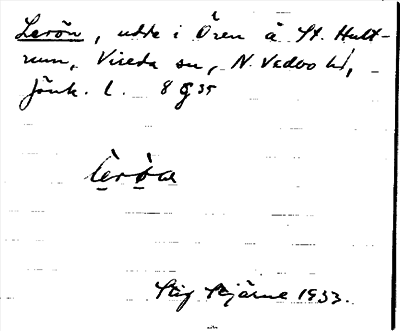 Lerön, udde i Ören å St. Hult-
rum, Vireda sn, N. Vedbo hd,
Jönk. l. 8 G 35
lèrö̀a
Stig Bjärme 1933.